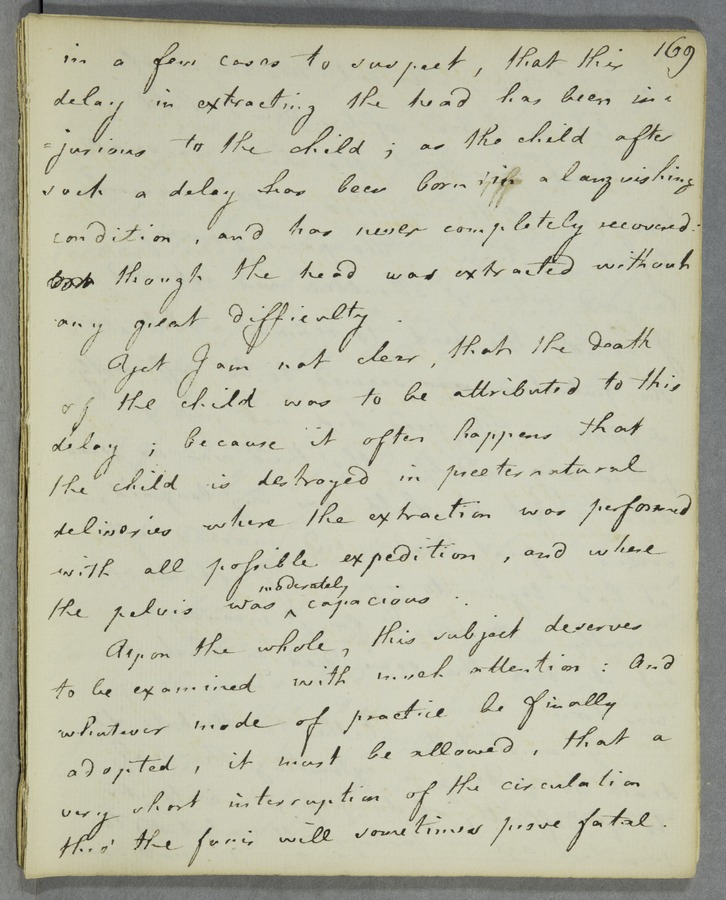 169
in a few cases to suspect, that this
delay in extracting the head has been in=
=jurious to the child ; as the child after
such a delay has been born in a languishing
condition, and has never completely recovered:
though the head was extracted without
any great difficulty.
Yet I am not clear, that the death
of the child was to be attributed to this
delay ; because it often happens that
the child is destroyed in preeternatural
deliveries where the extraction was performed
with all possible expedition, and where
moderately
the pelvis was ^ capacious.
Upon the whole, this subject deserves
to be examined with much attention : And
whatever mode of practice be finally
adopted, it must be allowed, that a
very short interruption of the circulation
thro' the funis will sometimes prove fatal.